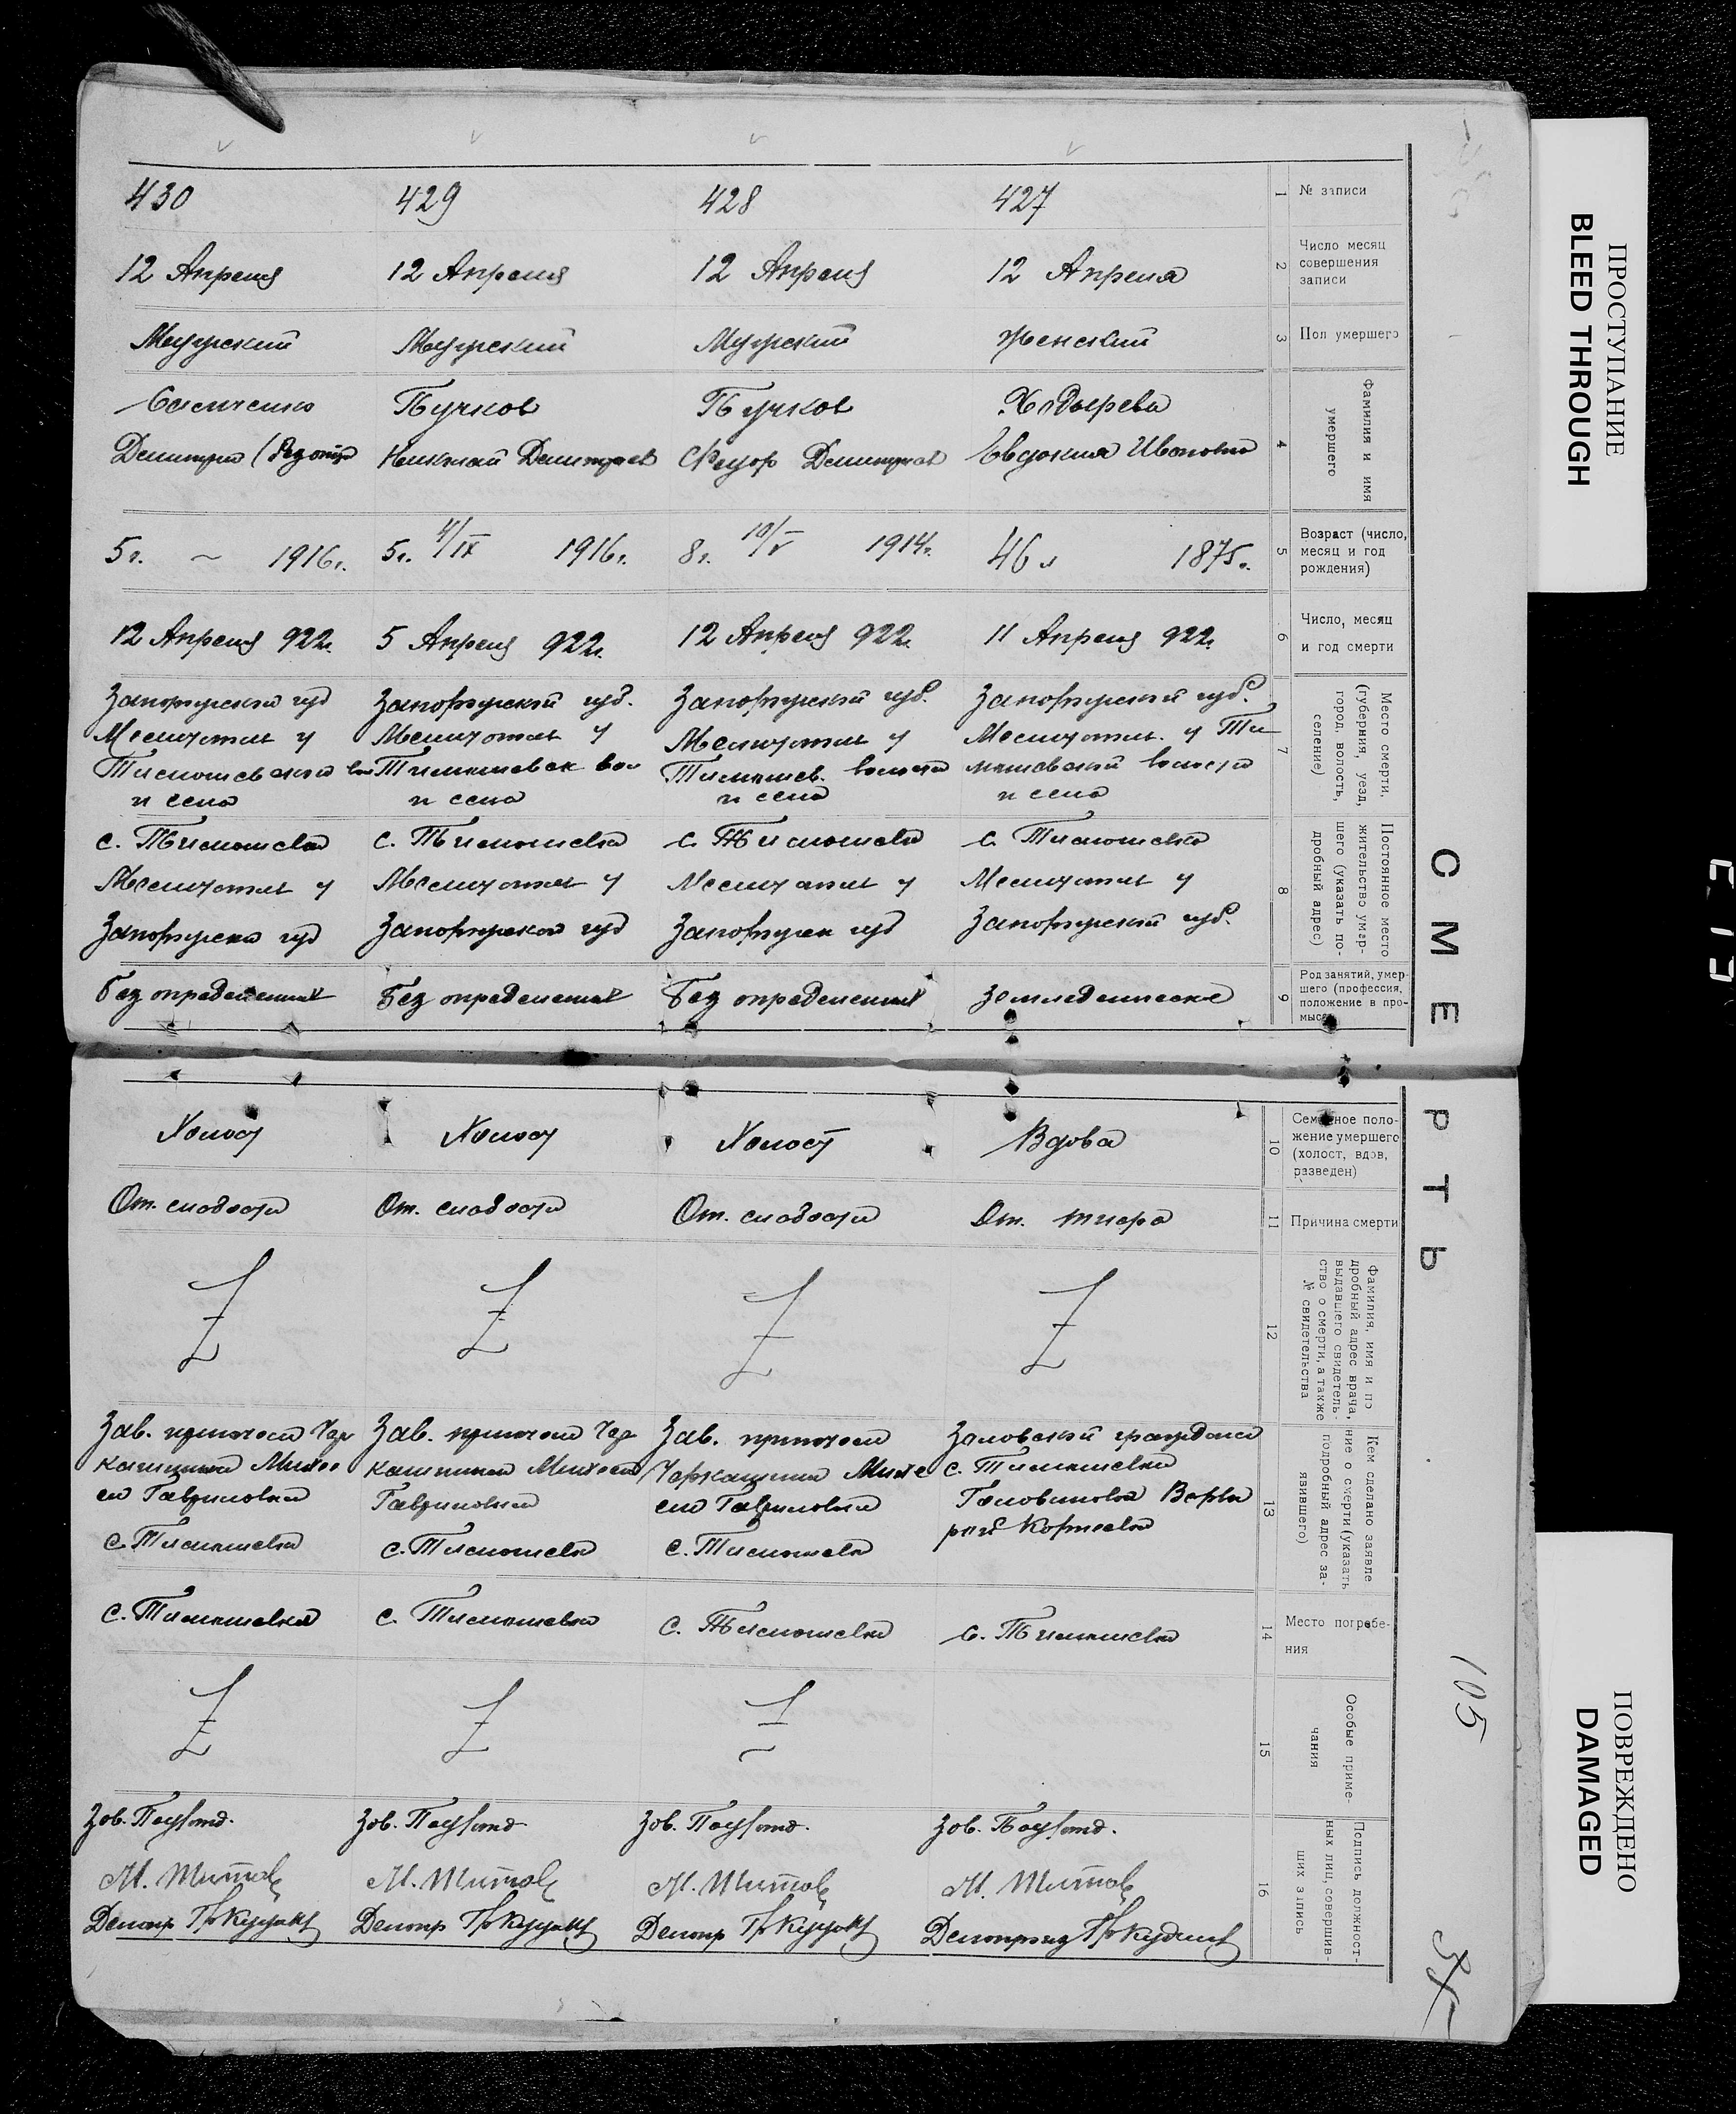 ПРОСТУПАНИЕ
BLEED THROUGH
ПОВРЕЖДЕНО
DAMAGED
СМЕРТЬ
105
1
№ записи
427
428
429
430
2
Число месяц
совершения
записи
12 Апреля
12 Апреля
12 Апреля
12 Апреля
3
Пол умершего
Женский
Мужский
Мужский
Мужский
4
Фамилия и имя
умершего
Евдокия Ивановна
Бучков
Федор Дмитриев
Бучков
Николай Дмитриев
Савченко
Дмитрий
5
Возраст (число,
месяц и год
рождения)
46 л 1875г.
8г. 10/V 1914г.
5г. 4/IX 1916г.
5г. ~ 1916г.
6
Число, месяц
и год смерти
11 Апреля 922г.
12 Апреля 922г.
5 Апреля 922г.
12 Апреля 922г.
7
Место смерти.
(губерния, уезд,
город, волость,
селение)
Запорожской губ.
Мелитопол. у Ти
мошевской волости
и села
Запорожской губ.
Мелитопол у
Тимошев. волости
и села
Запорожской губ.
Мелитопол у
Тимошевск вол
и села
Запорожской губ
Мелитопол у
Тимошевской вол
и села
8
Постоянное место
жительство умер-
шего (указать по-
дробный адрес)
с. Тимошевка
Мелитопол у
Запорожской губ.
с. Тимошевка
Мелитопол у
Запорожск губ
с. Тимошевка
Мелитопол у
Запорожской губ
с. Тимошевка
Мелитопол у
Запорожской губ
9
Род занятий, умер-
шего (профессия,
положение в про-
мысле
Земледелическое
Без определенных
Без определенных
Без определенных
10
Семейное поло-
жение умершего
(холост, вдов,
разведен)
Вдова
Холост
Холост
Холост
11
Причина смерти
От. тифа
От. слабости
От. слабости
От. слабости
12
Фамилия, имя и по
дробный адрес врача,
выдавшего свидетель-
ство о смерти, а также
№ свидетельства
13
Кем сделано заявле
ние о смерти (указать
подробный адрес за-
явившего)
с. Тимошевки
Зав. приютом
с. Тимошевка
Зав. приютом
Гавриловной
с. Тимошевка
Зав. приютом
с. Тимошевка
14
Место погребе-
ния
с. Тимошевка
с. Тимошевка
с. Тимошевка
с. Тимошевка
15
Особые приме-
чания
16
Подпись должност-
ных лиц, совершив-
ших запись
Зав.
М. Титов
Делопр
Зав.
М. Титов
Делопр
Зав.
М. Титов
Делопр
Зав.
М. Титов
Делопр